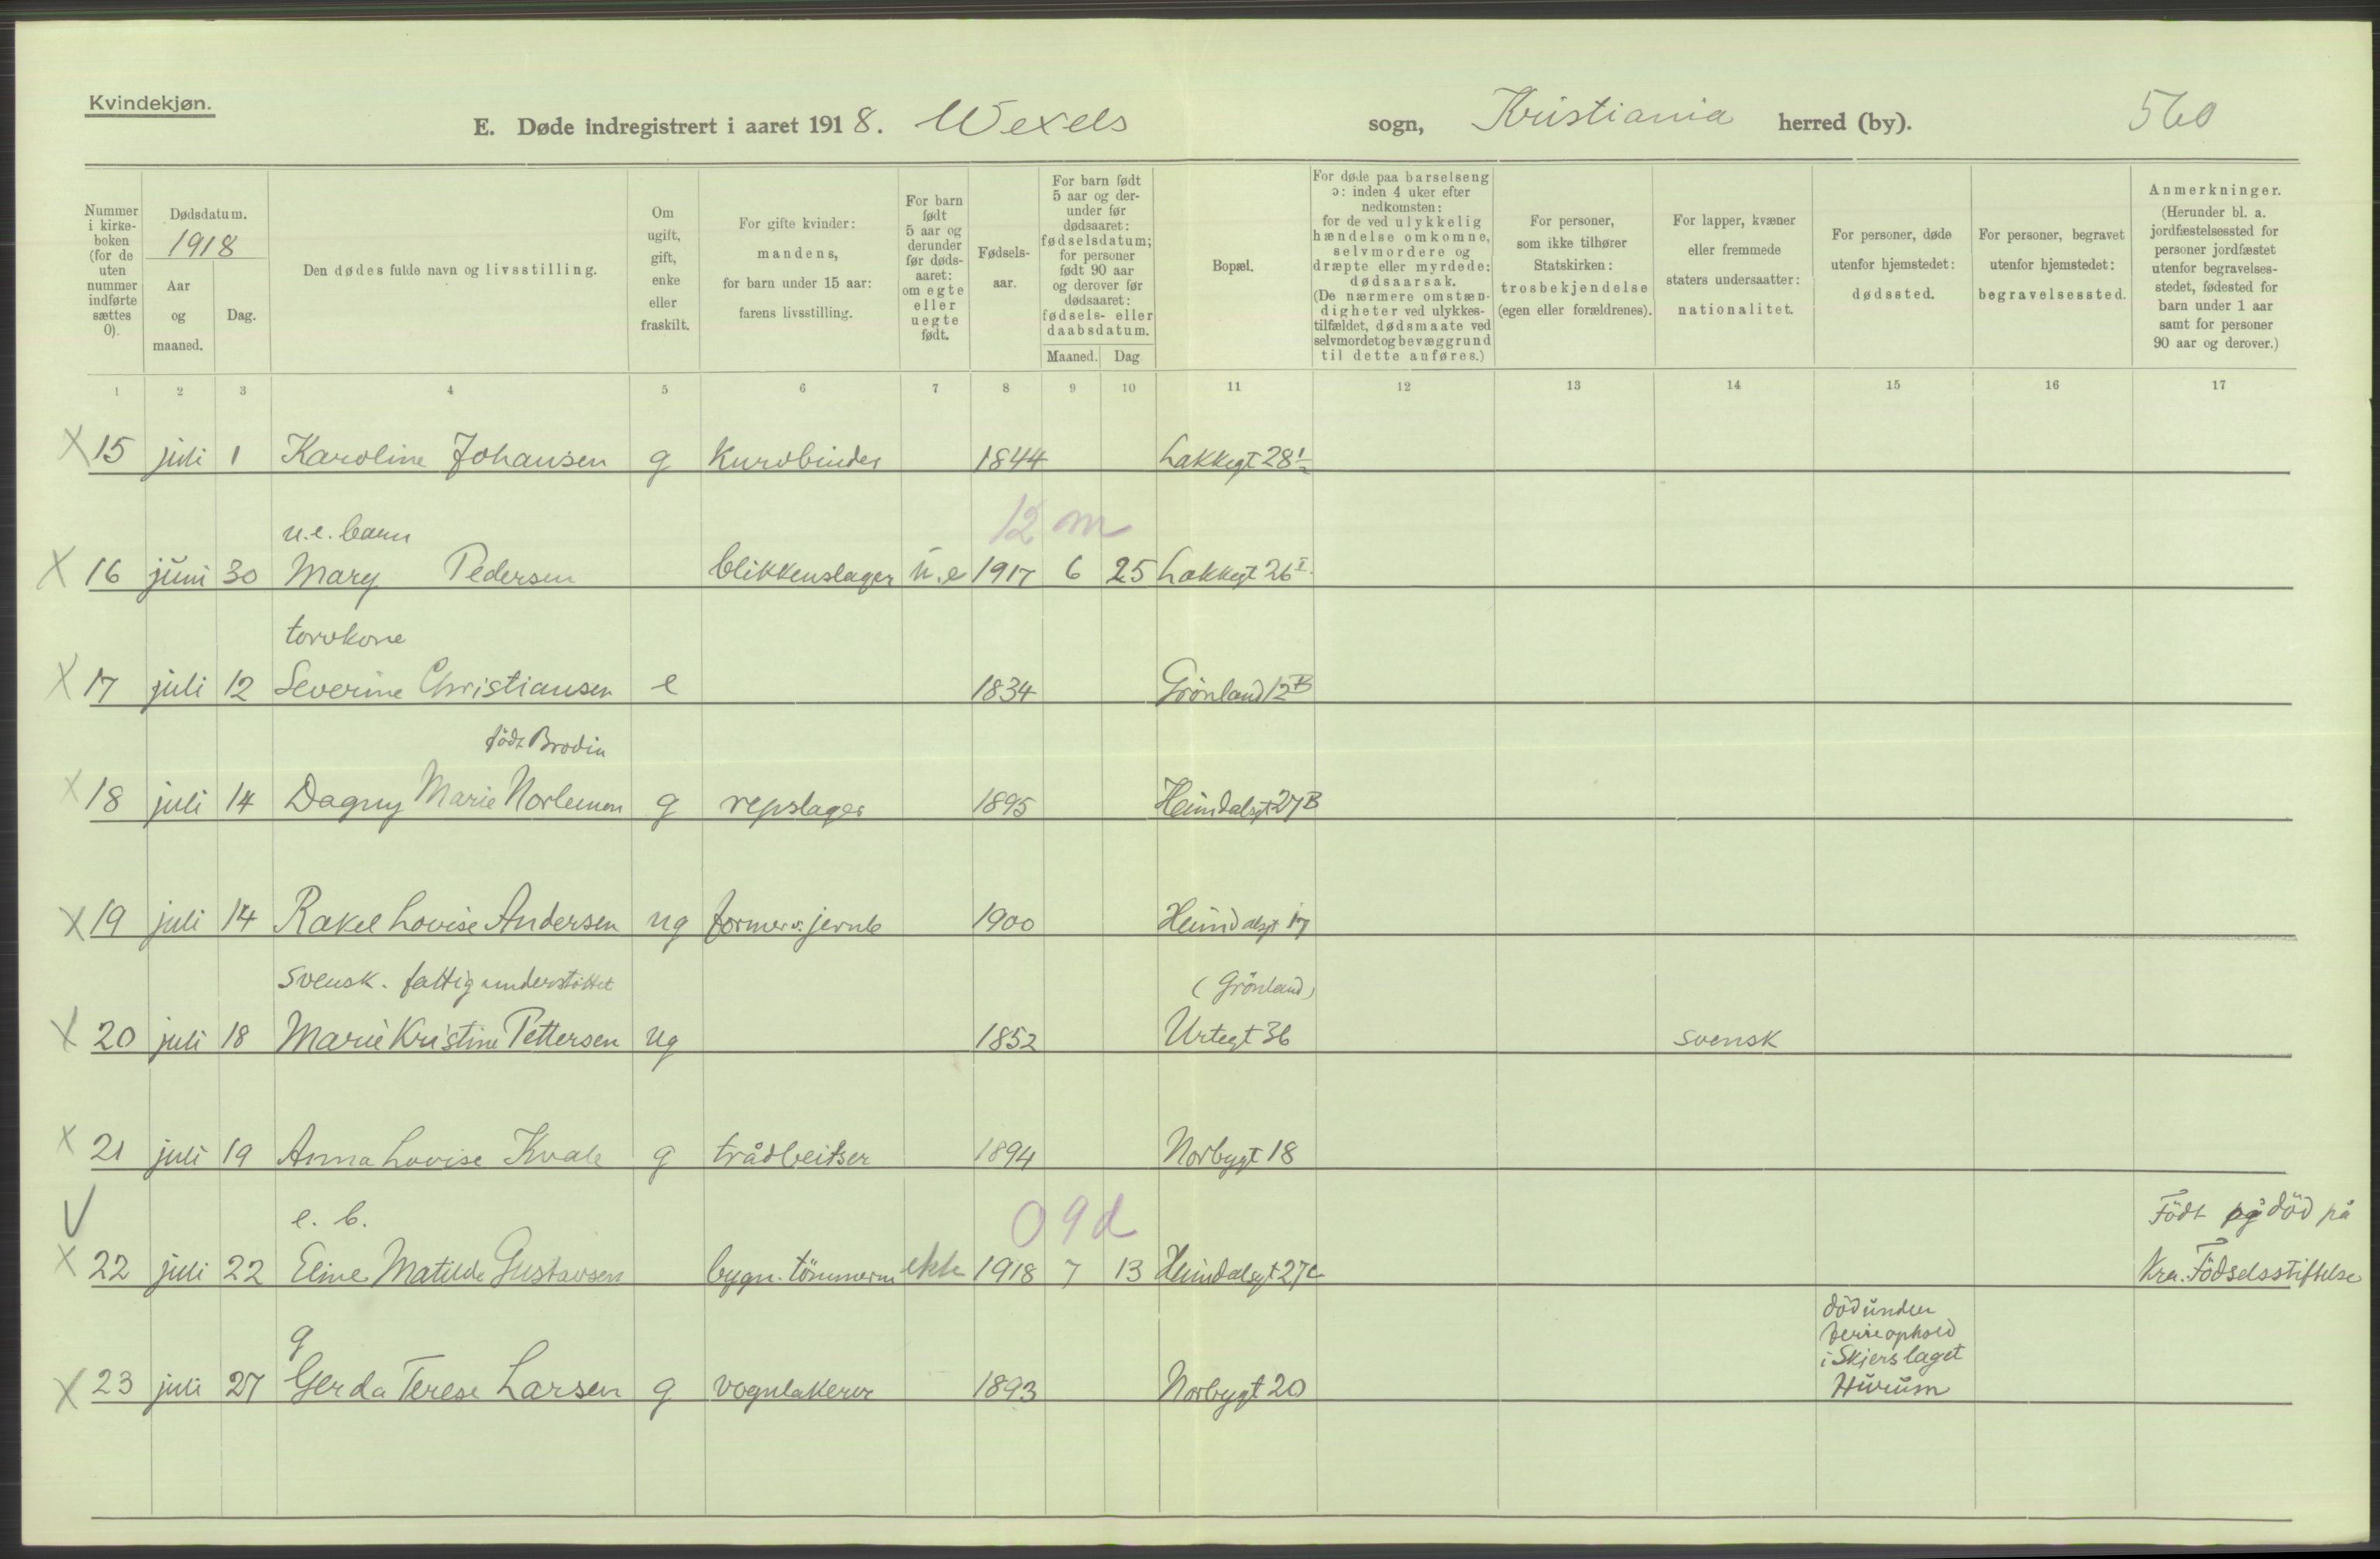 Kvindekjøn.
E. Døde indregistrert i aaret 1918. Wexels sogn, Kristiania herred (by). 560
Nummer i kirkeboken (for de uten nummer indførte sættes 0).
Dødsdatum.
1918
Aar og maaned.
Dag.
Den dødes fulde navn og livsstilling.
Om ugift, gift, enke eller fraskilt.
For gifte kvinder: mandens, for barn under 15 aar: farens livsstilling.
For barn født 5 aar og derunder før dødsaaret: om egte eller uegte født.
Fødselsaar.
For barn født 5 aar og derunder før dødsaaret: fødselsdatum; for personer født 90 aar og derover før dødsaaret: fødsels- eller daabsdatum.
Maaned. Dag
Bopæl.
For døde paa barselseng ɔ: inden 4 uker efter nedkomsten; for de ved ulykkelig hændelse omkomne, selvmordere og dræpte eller myrdede: dødsaarsak. (De nærmere omstændigheter ved ulykkestilfældet, dødsmaate ved selvmordet og bevæggrund til dette anføres.)
For personer, som ikke tilhører Statskirken: trosbekjendelse (egen eller forældrenes).
For lapper, kvæner eller fremmede staters undersaatter: nationalitet.
For personer, døde utenfor hjemstedet: dødssted.
For personer, begravet utenfor hjemstedet: begravelsessted.
Anmerkninger. (Herunder bl. a. jordfæstelsessted for personer jordfæstet utenfor begravelsesstedet, fødested for barn under 1 aar samt for personer 90 aar og derover.)
1 2 3 4 5 6 7 8 9 10 11 12 13 14 15 16 17
X 15 juli 1 Karoline Johansen g Kurvbinder 1844 Lakkegt 28 1/2
12 m
u.e. barn
X 16 juni 30 Mary Pedersen blikkenslager u.e 1917 6 25 Lakkegt 26 I.
torvkone
X 17 juli 12 Severine Christiansen e 1834 Grönland 12 B
födt Brodin
X 18 juli 14 Dagny Marie g repslager 1895 Heimdalsgt 27 B
X 19 juli 14 Rakel Lovise Andersen ug former v. jernb 1900 Heimdalsgt 17
Svensk. fattigunderstöttet (Grönland)
X 20 juli 18 Marie Kristine Pettersen ug 1852 Urtegt 36 svensk
X 21 juli 19 Anna Lovise Kvale g trådbeitser 1894 Norbygt 18
V e. b. 09d Födt og död på
X 22 juli 22 Eline Matilde Gustavsen bygn. tömmerm ekte 1918 7 13 Heimdalsgt 27c Kra. Födselsstiftelse
död under
ferieophold
i Skjerslaget
g
X 23 juli 27 Gerda Terese Larsen g vognlakerer 1893 Norbygt 20 Hurum